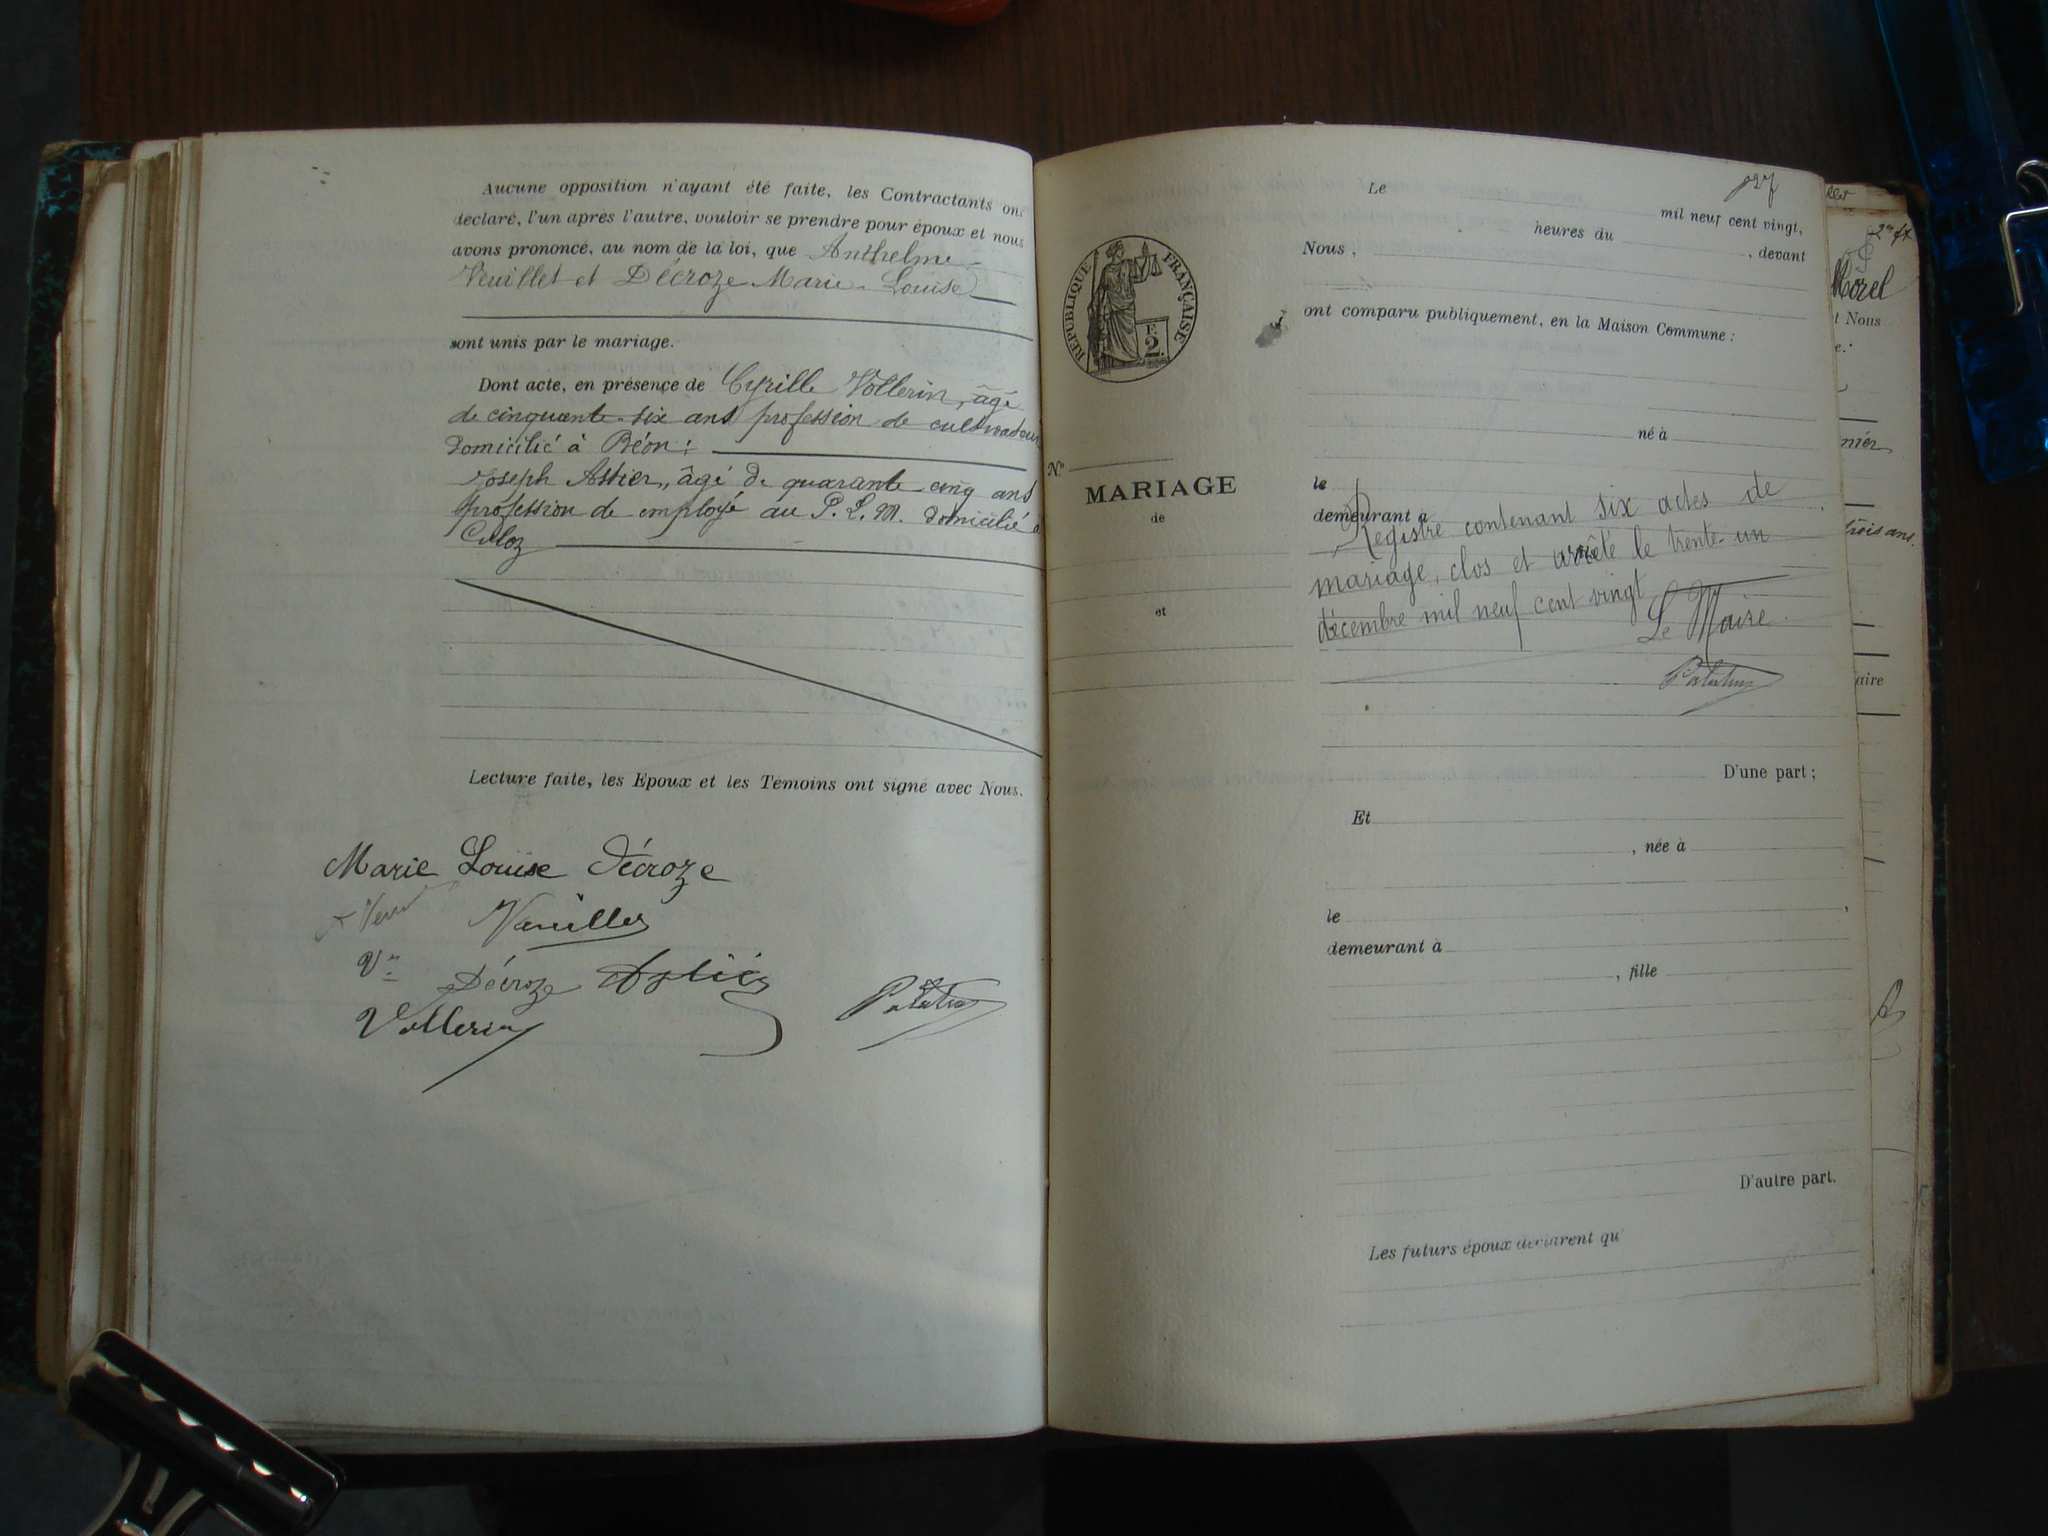 Aucune opposition n'ayant été faite, les Contractants on
déclaré, l'un après l'autre, vouloir se prendre pour époux et nous
avons prononcé, au nom de la loi, que Anthelme
Veuillet et Décroze Marie-Louise
sont unis par le mariage.
Dont acte, en présence de Cyrille Vollerin, âgé
de cinquante-six ans profession de cultivateur
domicilié à Béon;
Joseph Astier, âgé de quarante-cinq ans
profession de employé au P. L. M. domicilié à
Culoz
Lecture faite, les Epoux et les Témoins ont signé avec Nous.
Marie Louise Décroze
Veuillet
Vve Décroze Astier
Vollerin
Le
mil neuf cent vingt,
heures du , devant
Nous,
ont comparu publiquement, en la Maison Commune :
RÉPUBLIQUE FRANÇAISE
F.
2
né à
No
MARIAGE
de
et
le
demeurant à
Registre contenant six actes de
mariage, clos et arrêté le trente-un
décembre mil neuf cent vingt
Le Maire
D'une part ;
Et
, née à
le ,
demeurant à
, fille
D'autre part.
Les futurs époux déclarent qu'
Morel
t Nous
trois ans.
aire